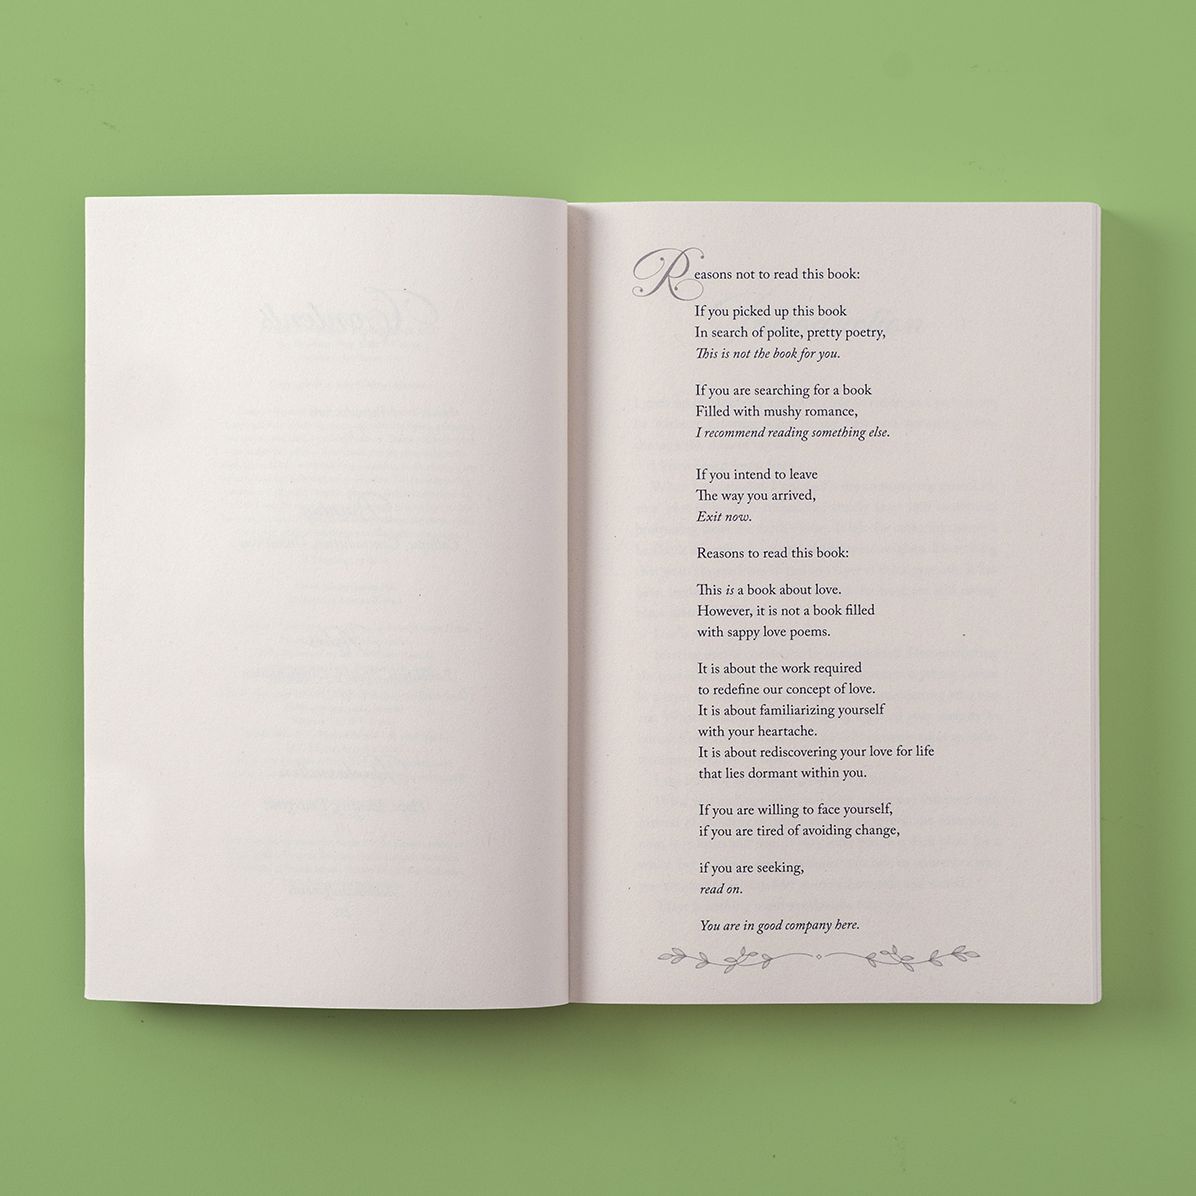 Reasons not to read this book:
If you picked up this book
In search of polite, pretty poetry,
This is not the book for you.
If you are searching for a book
Filled with mushy romance,
I recommend reading something else.
If you intend to leave
The way you arrived,
Exit now.
Reasons to read this book:
This is a book about love.
However, it is not a book filled
with sappy love poems.
It is about the work required
to redefine our concept of love.
It is about familiarizing yourself
with your heartache.
It is about rediscovering your love for life
that lies dormant within you.
If you are willing to face yourself,
if you are tired of avoiding change,
if you are seeking,
read on.
You are in good company here.